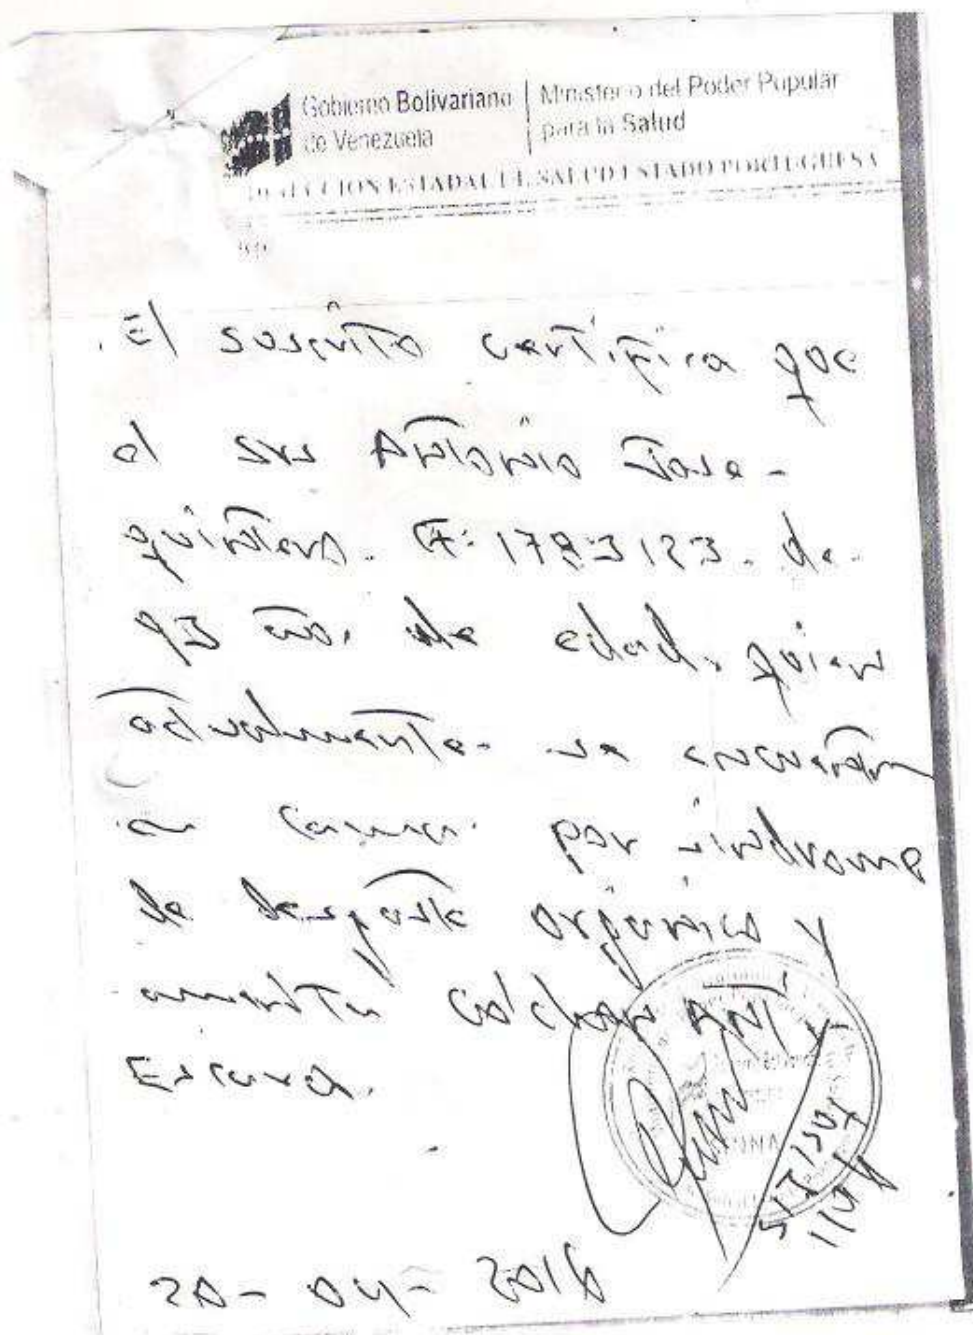 Gobierno Bolivariano de Venezuela
Ministerio del Poder Popular para la Salud
DIRECCION ESTADAL DE SALUD ESTADO PORTUGUESA
El suscrito certifica que
el sr Antonio Jose
quintero. de
93 año. de edad. quien
actualmente se encuentra
en cama por sindrome
de desgaste organico y
amerita colchon Anti
Escara.
20-04-2016